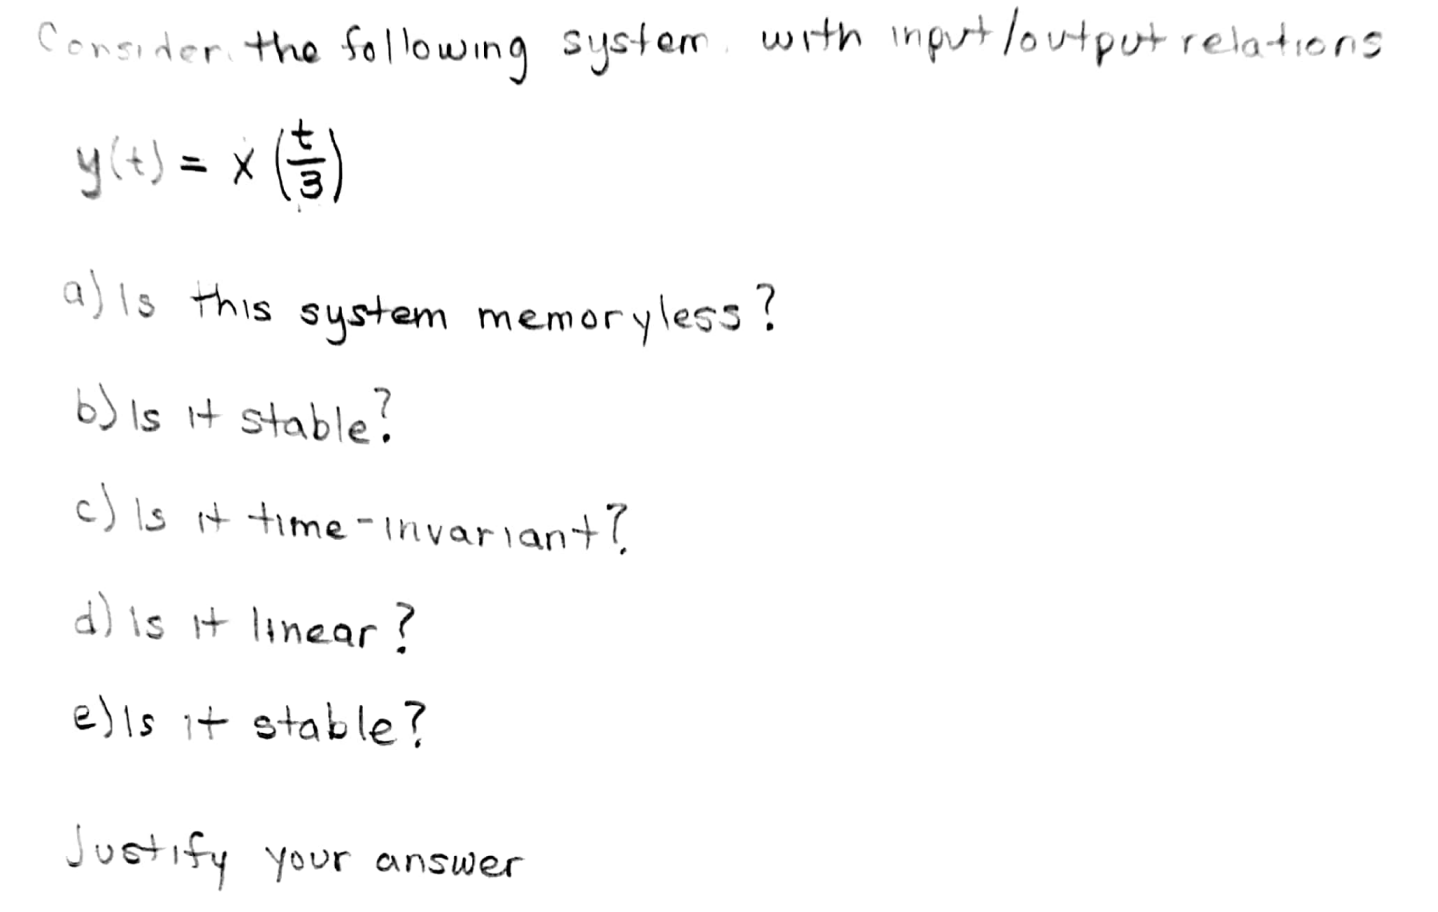 Consider the following system with input/output relations
y(t) = x(t/3)
a) Is this system memoryless?
b) Is it stable?
c) Is it time-invariant?
d) is it linear?
e) Is it stable?
Justify your answer